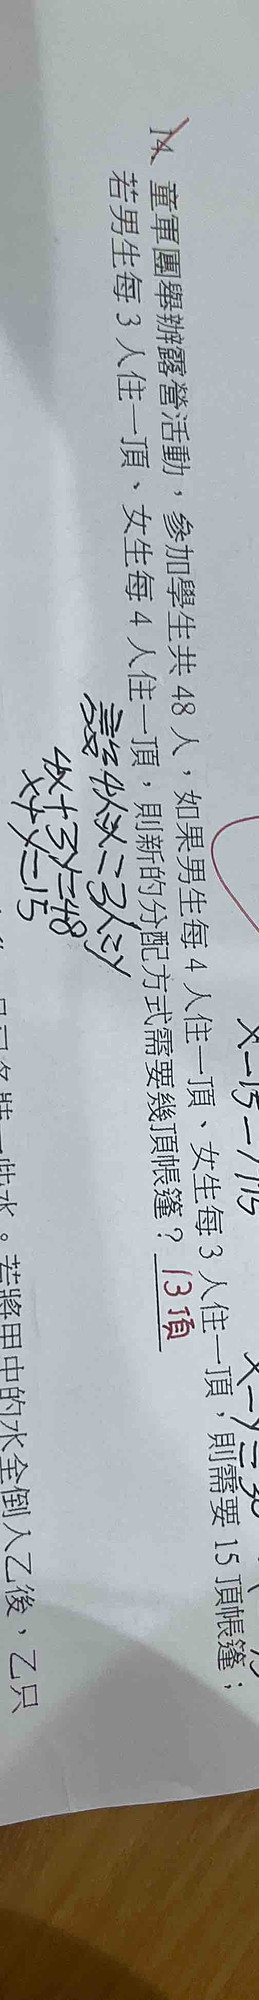 x-15-1/115
x-y=30
14. 童軍團舉辦露營活動，參加學生共 48 人，如果男生每 4 人住一頂、女生每 3 人住一頂，則需要 15 頂帳篷；
若男生每 3 人住一頂、女生每 4 人住一頂，則新的分配方式需要幾頂帳篷？13頂
設4人=x 3人=y
4x+3y=48
x+y=15
水。若將甲中的水全倒入乙後，乙只